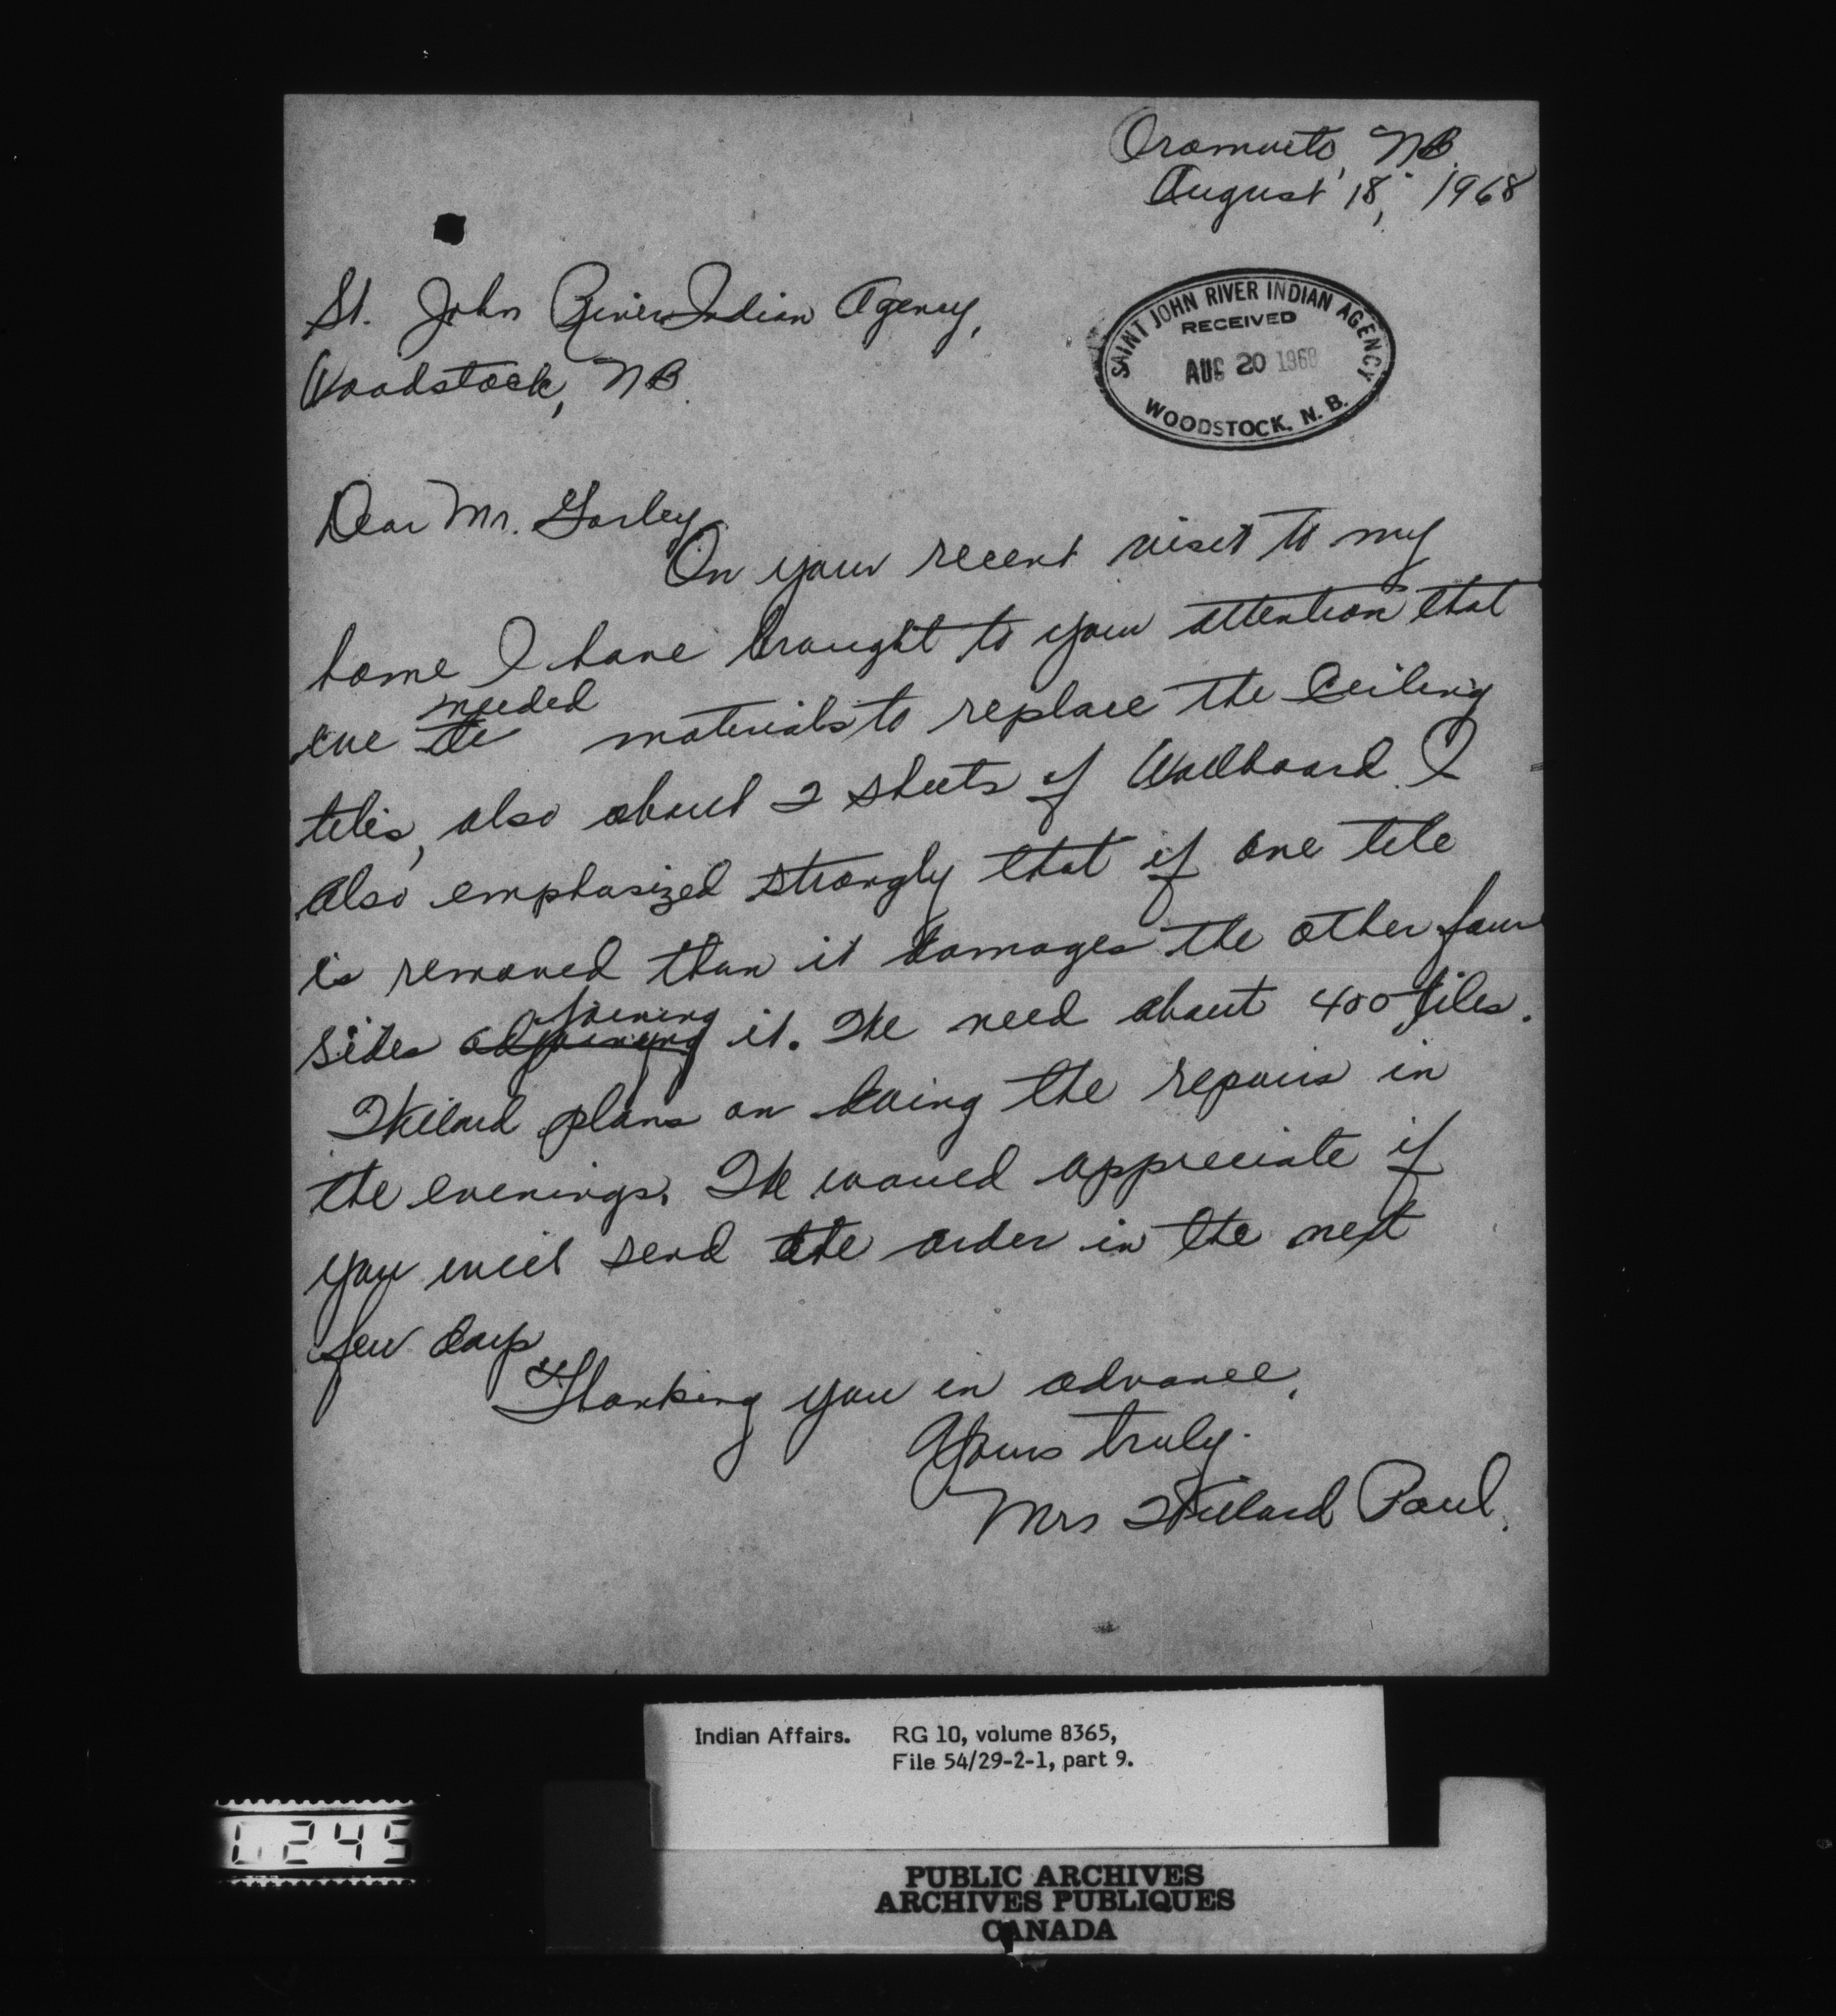 Oromocto, NB.
August 18, 1968
St. John River Indian Agency,
Woodstock, NB.
SAINT JOHN RIVER INDIAN AGENCY
RECEIVED
AUG 20 1968
WOODSTOCK, N. B.
Dear Mr. Gorley,
On your recent visit to my
home I have brought to your attention that
needed
we the materials to replace the ceiling
tiles, also about 2 sheets of Wallboard. I
also emphasized strongly that if one tile
is removed than it damages the other four
joining
sides adjoining it. We need about 400 tiles.
Willard plans on doing the repairs in
the evenings. We would appreciate if
you will send the order in the next
few days
Thanking you in advance,
Yours truly.
Mrs Willard Paul.
Indian Affairs. RG 10, volume 8365,
File 54/29-2-1, part 9.
245
PUBLIC ARCHIVES
ARCHIVES PUBLIQUES
CANADA